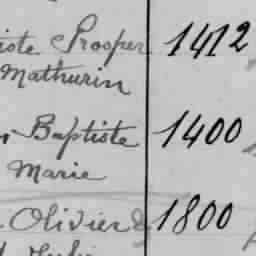 iste Prosper 1412
Mathurin
Baptiste 1400
Marie
Olivier 1800